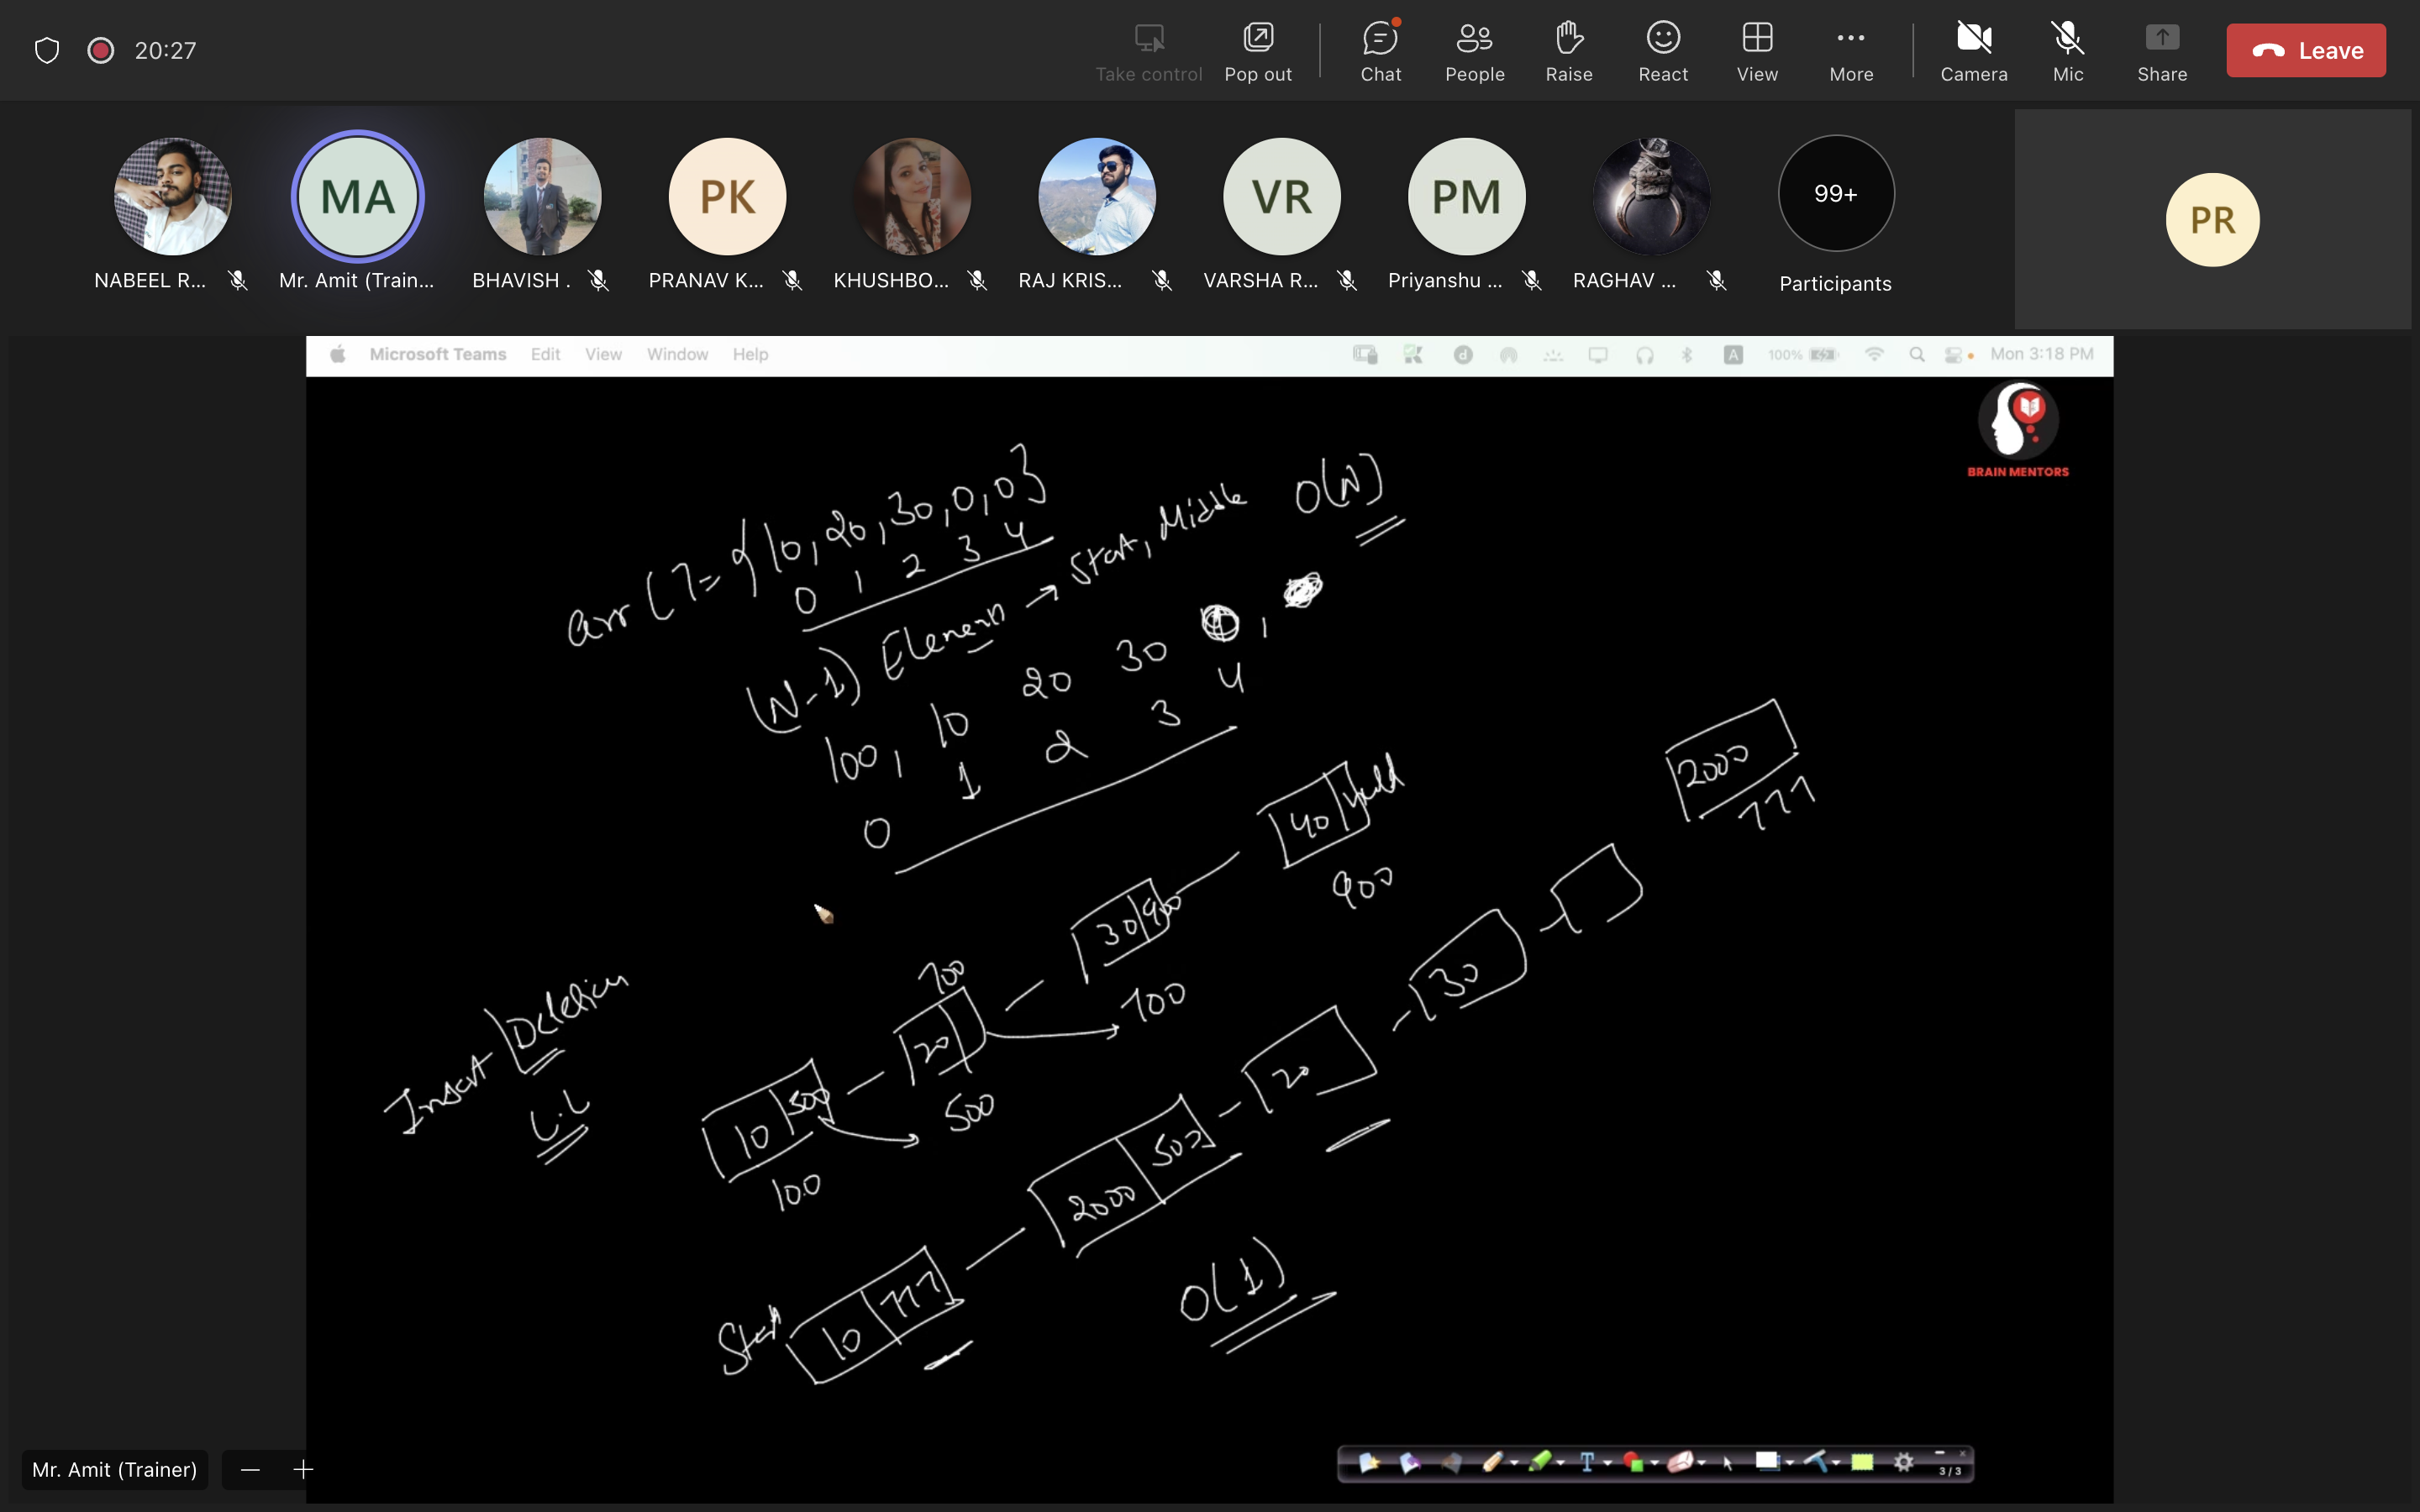 20:27
Take control
Pop out
Chat
People
Raise
React
View
More
Camera
Mic
Share
Leave
MA
PK
VR
PM
99+
PR
NABEEL R...
Mr. Amit (Train...
BHAVISH .
PRANAV K...
KHUSHBO...
RAJ KRIS...
VARSHA R...
Priyanshu ...
RAGHAV ...
Participants
Microsoft Teams Edit View Window Help
A 100% Mon 3:18 PM
BRAIN MENTORS
arr[]={10,20,30,0,0}
0 1 2 3 4
(N-1) Element → Start, Middle O(N)
100, 10 20 30 ,
0 1 2 3 4
10 500
100
20 700
500
30 900
700
40 null
900
2000
777
Insert Deletion
L.L
Start 10 777
2000 500
20
30
O(1)
Mr. Amit (Trainer)
3/3